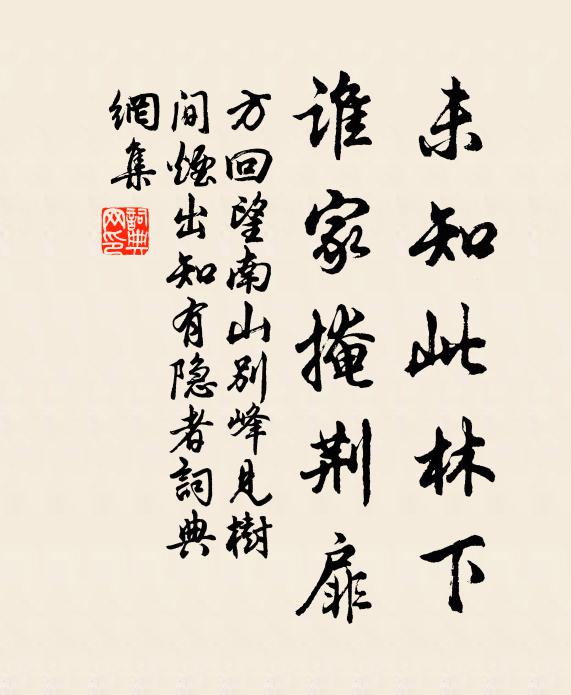 未知此林下
谁家掩荆扉
方回望南山别峰见樹
间烟出知有隐者詞典
網集
詞典
网印